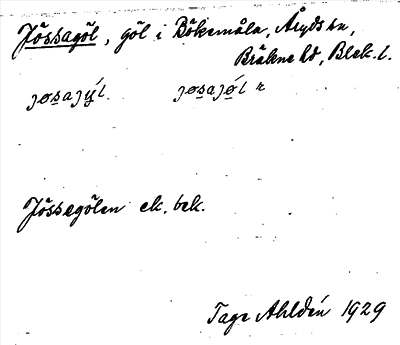 Jössagöl, göl i Bökemåla, Åryds sn,
Bräkne hd, Blek. l.
jøsajýl. jøsajǿl r
Jössegölen ek. bek.
Tage Ahldén 1929